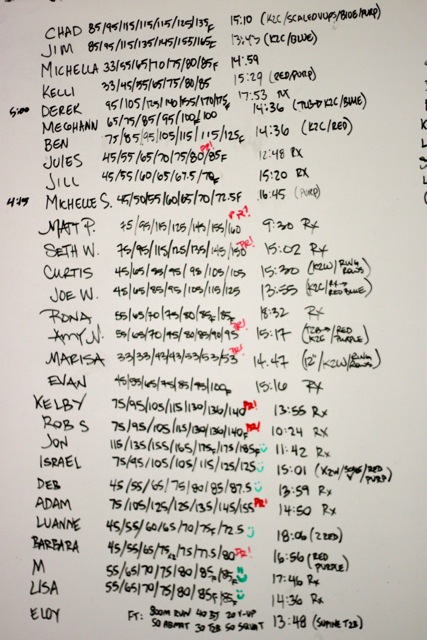 CHAD 85/95/115/115/115/125/135F 15:10 (K2C/SCALED VUPS/BLUE/PURP)
JIM 85/95/115/135/145/155/165F 13:43 (K2C/BLUE)
MICHELLA 33/55/65/70/75/80/85F 14:59
KELLI 33/45/55/65/75/80/85 15:29 (RED/PURP)
5:00 DEREK 95/105/125/140/155/170/175F 17:53 RX
MEGHANN 65/75/85/95/100F/100 14:36 (T2B→K2C/BLUE)
BEN 75/85/95/105/115/115/125F 14:36 (K2C/RED)
PR!
JULES 45/55/65/70/75/80/85F 12:48 RX
JILL 45/55/60/65/67.5/70F 15:20 RX
4:45 MICHELLE S. 45/50/55/60/65/70/72.5F 16:45 (PURP)
MATT P. 75/95/115/125/145/155/160 PR! 9:30 Rx
SETH W. 75/95/115/125/135/145/150 PR! 15:02 Rx
CURTIS 45/65/95/95/95/105/105 15:30 (K2W/RING ROWS)
JOE W. 45/65/85/95/105/115/125 13:55 (K2C/RX→RED BLUE)
RONA 55/65/70/75/80/85F/85F 18:32 Rx
AMY N. 55/65/70/75/80/85/90/95 PR! 15:17 (T2B→RED K2C PURPLE)
MARISA 33/33/43/43/53/53/53 PR! 14:47 (12"/K2W/RING ROWS)
EVAN 45/55/65/75/85/95/100F 15:16 Rx
KELBY 75/95/105/115/130/130/140 PR! 13:55 Rx
ROB S 75/95/105/115/130/130/140F PR! 10:24 Rx
JON 115/135/155/165/175F/175/185F 11:42 Rx
ISRAEL 75/95/105/105/115/125/125 15:01
DEB 45/55/65/75/80/85/87.5 13:59 Rx
ADAM 75/105/125/125/135/145/155 PR! 14:50 Rx
LUANNE 45/55/60/65/70/75F/72.5 18:06 (2 RED)
BARBARA 45/55/65/75/75/77.5/80 PR! 16:56 (RED PURPLE)
M 55/65/70/75/80/85F/85F 17:46 Rx
LISA 55/65/70/75/80/85/85F 14:36 Rx
ELOY FT: 800M RUN 40 BJ 20 V-UP 13:48 (SUPINE T2B)
50 ABMAT 30 T2B 50 SQUAT